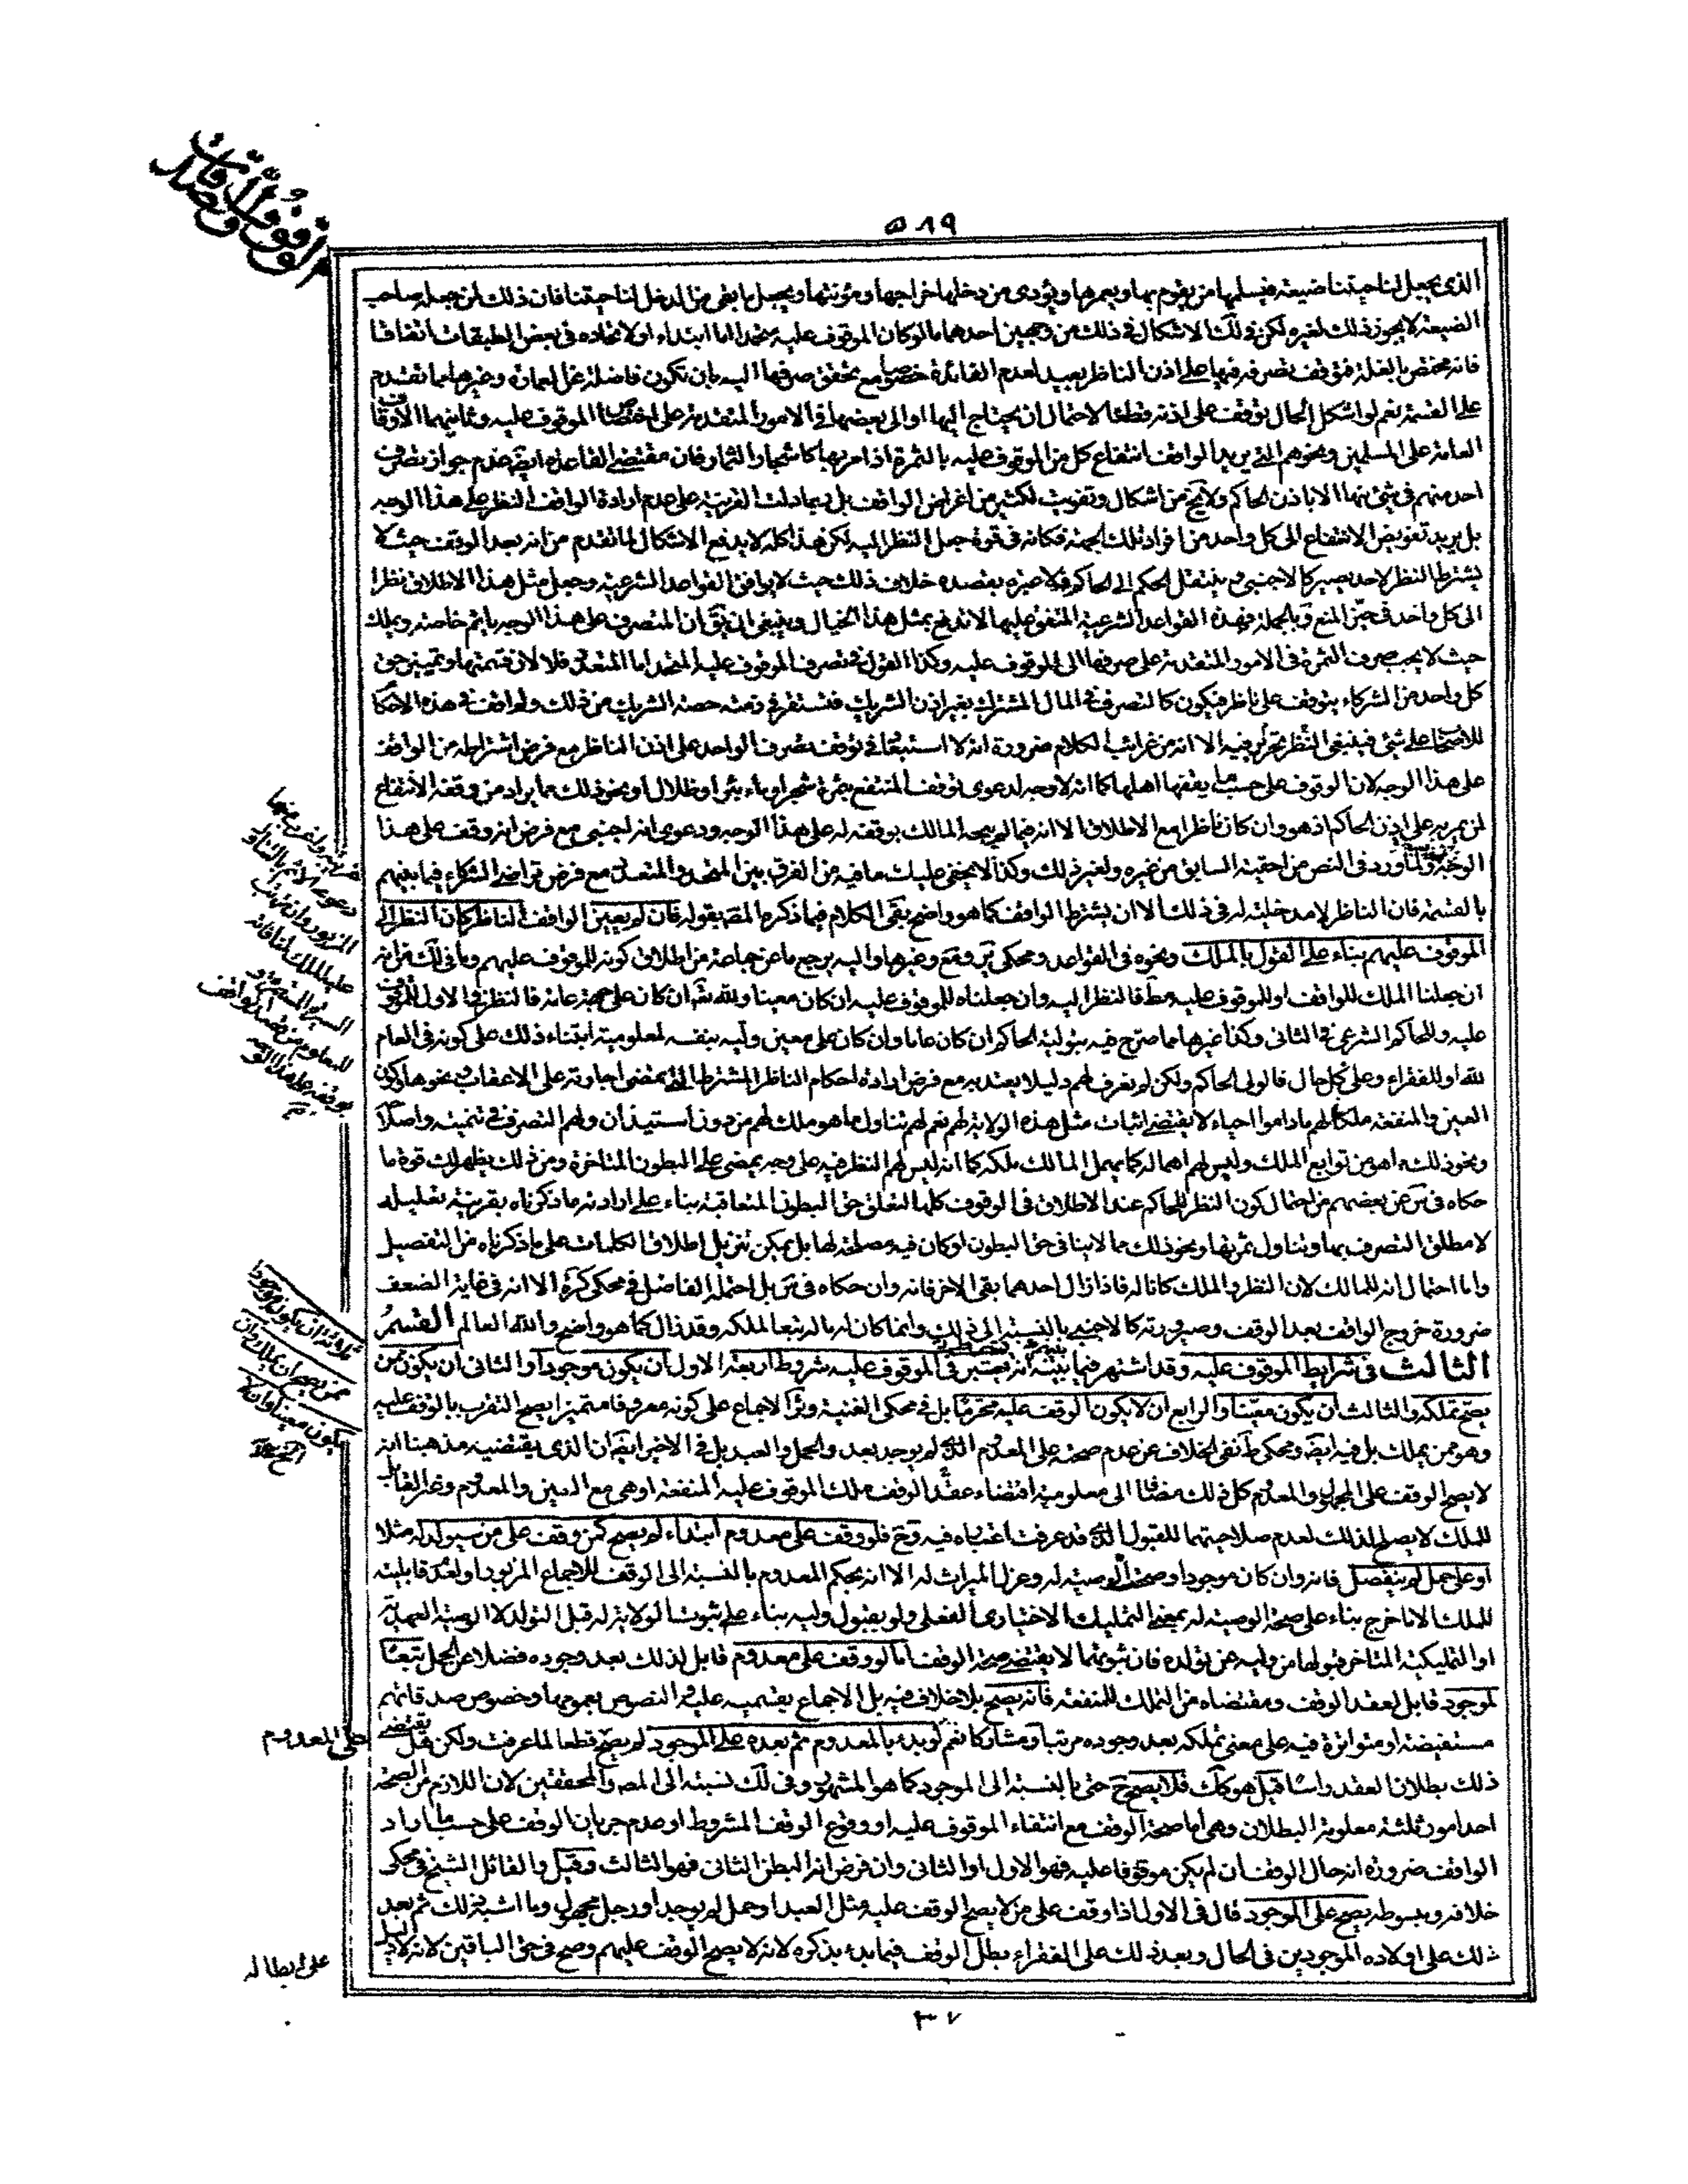 الوقوف والصدقات
٥٨٩
الذى يجعل لناحيتنا ضيعة ويسلمها من يقوم بها ويعمرها ويؤدى من دخلها خراجها ومؤنتها ويجعل ما بقى من الدخل لناحيتنا فان ذلك لمن جعله صاحب
الضيعة لا يجوز ذلك لغيره لكن الاشكال فى ذلك من وجهين احدهما ما لو كان الموقوف عليه متحدا اما ابتداء او لاتحاده فى بعض الطبقات اتفاقا
فانه مختص بالغلة فتوقف تصرفه فيها على اذن الناظر بعيد لعدم الفائدة خصوصا مع تحقق صرفها اليه بان تكون فاضلة عن العمارة وغيرها مما تقدم
على القسمة نعم لو اشكل الحال توقف على اذنه قطعا لاحتمال ان يحتاج اليها او الى بعضها فى الامور المتقدمة على اختصاص الموقوف عليه وثانيهما الاوقاف
العامة على المسلمين ونحوهم التى يريد الواقف انتفاع كل من الموقوف عليه بالثمرة اذا مر بها كاشجار الثمار فان مقتضى القاعدة ايضا عدم جواز تصرف
احد منهم فى شئ منها الا باذن الحاكم ولا يخ من اشكال وتفويت لكثير من اغراض الواقف بل ربما دلت القرينة على عدم ارادة الواقف النظر على هذا الوجه
بل يريد تفويض الانتفاع الى كل واحد من افراد تلك الجهة فكانه فى قوة جعل النظر اليه لكن هذا كله لا يدفع الاشكال لما تقدم من انه بعد الوقف حيث لا
يشترط النظر لاحد يصير كالاجنبى وينتقل الحكم الى الحاكم فلا عبرة بقصده خلاف ذلك حيث لا يوافق القواعد الشرعية وجعل مثل هذا الاطلاق نظرا
الى كل واحد فى حيز المنع وبالجملة فهذه القواعد الشرعية المتفق عليها لا تندفع بمثل هذا الخيال وينبغى ان يق ان المتصرف على هذا الوجه ياثم خاصة ويملك
حيث لا يجب صرف الثمرة فى الامور المتقدمة على صرفها الى الموقوف عليه وكذا القول فى تصرف الموقوف عليه المتحد اما المتعدد فلا لان قسمتها وتمييز حق
كل واحد من الشركاء يتوقف على ناظر فيكون كالتصرف فى المال المشترك بغير اذن الشريك فتستقر فى ذمته حصة الشريك من ذلك ولم اقف فى هذه الاحكام
للاصحاب على شئ فينبغى النظر فيه الا انه من غرائب الكلام ضرورة انه لا استبعاد فى توقف تصرف الواحد على اذن الناظر مع فرض اشتراطه من الواقف
على هذا الوجه لان الوقوف على حسب ما يقفها اهلها كما انه لا وجه لدعوى توقف المنتفع بثمرة شجر او ماء بئر او ظلال او نحو ذلك مما يراد من وقفه الانتفاع
لمن يمر به على اذن الحاكم اذ هو وان كان ناظرا مع الاطلاق الا انه فيما لم يبحه المالك بوقفه له على هذا الوجه ودعوى انه اجنبى مع فرض انه وقف على هذا
الوجه ورد فى النص من احقية السابق من غيره ولغير ذلك وكذا لا يخفى عليك ما فيه من الفرق بين المتحد والمتعدد مع فرض تراضى الشركاء فيما بينهم
بالقسمة فان الناظر لا مدخلية له فى ذلك الا ان يشترط الواقف كما هو واضح بقى الكلام فيما ذكره المصـ بقوله فان لم يعين الواقف الناظر كان النظر الى
الموقوف عليهم بناء على القول بالملك ونحوه فى القواعد ومحكى ير وقع وغيرها واليه يرجع ما عن جماعة من اطلاق كونه للموقوف عليهم وما فى لك من انه
ان جعلنا الملك للواقف او للموقوف عليه مطلقا فالنظر اليه وان جعلناه للموقوف عليه ان كان معينا ولله ان كان على جهة عامة فالنظر فى الاول للموقوف
عليه وللحاكم الشرعى فى الثانى وكذا غيرها مما صرح فيه بتولية الحاكم ان كان عاما وان كان على معين وليه بنفسه لمعلومية ابتناء ذلك على كونه فى العام
لله او للفقراء وعلى كل حال فالولى الحاكم ولكن لم نعرف لهم دليلا يعتد به مع فرض ارادة احكام الناظر المشترط التى بمقتضى اجارته على الاعقاب ونحوها وكون
العين والمنفعة ملكا لهم ماداموا احياء لا يقتضى اثبات مثل هذه الولاية لهم نعم لهم تناول ما هو ملك لهم من دون استيذان ولهم التصرف فى تنميته واصلاحه
ونحو ذلك مما هو من توابع الملك وليس لهم اهماله كما يهمل المالك ملكه كما انه ليس لهم النظر فيه على وجه يمضى على البطون المتاخرة ومن ذلك يظهر لك قوة ما
حكاه فى ير عن بعضهم من احتمال كون النظر للحاكم عند الاطلاق فى الوقوف كلها لتعلق حق البطون المتعاقبة بناء على ارادته ما ذكرناه بقرينة تعليله
لا مطلق التصرف بها وتناول ثمرتها ونحو ذلك مما لا ينافى حق البطون او كان فيه مصلحة لها بل يمكن تنزيل اطلاق الكلمات على ما ذكرناه من التفصيل
واما احتمال انه للمالك لان النظر والملك كانا له فاذا زال احدهما بقى الاخر فانه وان حكاه فى ير بل احتمله الفاضل فى محكى كرة الا انه فى غاية الضعف
ضرورة خروج الواقف بعد الوقف وصيرورته كالاجنبى بالنسبة الى ذلك وانما كان له بالرتبة لملكه وقد زال كما هو واضح والله العالم القسم
الثالث فى شرايط الموقوف عليه وقد اشتهر فيما بينهم انه يعتبر فى الموقوف عليه شروط اربعة الاول ان يكون موجودا والثانى ان يكون ممن
يصح تملكه والثالث ان يكون معينا والرابع ان لا يكون الوقف عليه محرما بل فى محكى الغنية وئر الاجماع على كونه معروفا متميزا يصح التقرب بالوقف عليه
وهو ممن يملك بل فيه ايضا ومحكى ط نفى الخلاف عن عدم صحته على المعدوم الذى لم يوجد بعد والحمل والعبد بل فى الاخير ايضا ان الذى يقتضيه مذهبنا انه
لا يصح الوقف على المجهول والمعدوم كل ذلك مضافا الى معلومية اقتضاء عقد الوقف ملك الموقوف عليه المنفعة او هى مع العين والمعدوم وغير القابل
للملك لا يصح لذلك لعدم صلاحيتهما للقبول الذى قد عرفت اعتباره فيه وح فلو وقف على معدوم ابتداء لم يصح كمن وقف على من سيولد له مثلا
او على حمل لم ينفصل فانه وان كان موجودا وصحت الوصية له وعزل الميراث له الا انه بحكم المعدوم بالنسبة الى الوقف للاجماع المزبور او لعدم قابليته
للملك الا ما خرج بناء على صحة الوصية له بمعنى التمليك الاختيارى الفعلى ولو بقبول وليه بناء على ثبوت الولاية له قبل التولد لا الوصية العهدية
او التمليكية المتاخر قبولها من وليه عن تولده فان ثبوتهما لا يقتضى صحة الوقف اما لو وقف على معدوم قابل لذلك بعد وجوده فضلا عن الحمل تبعا
لموجود قابل لعقد الوقف ومقتضاه من التملك للمنفعة فانه يصح بلا خلاف فيه بل الاجماع بقسميه عليه والنصوص بعمومها وخصوص صدقاتهم
مستفيضة او متواترة فيه على معنى تملكه بعد وجوده مرتبا ومشاركا نعم لو بدء بالمعدوم ثم بعده على الموجود لم يصح قطعا لما عرفت ولكن هل يقتضى
ذلك بطلان العقد راسا قيل هو كك فلا يصح ح حتى بالنسبة الى الموجود كما هو المشهور وفى لك نسبته الى المصـ والمحققين لان اللازم من الصحة
احد امور ثلثة معلومة البطلان وهى اما صحة الوقف مع انتفاء الموقوف عليه او وقوع الوقف المشروط او عدم جريان الوقف على حسب ما اراد
الواقف ضرورة انه حال الوقف ان لم يكن موقوفا عليه فهو الاول او الثانى وان فرض انه البطن الثانى فهو الثالث وقيل والقائل الشيخ فى محكى
خلافه ومبسوطه يصح على الموجود قال فى الاول اذا وقف على من لا يصح الوقف عليه مثل العبد او حمل لم يوجد او رجل مجهول وما اشبه ذلك ثم بعد
ذلك على اولاده الموجودين فى الحال وبعد ذلك على الفقراء بطل الوقف فيما بدء بذكره لانه لا يصح الوقف عليهم وصح فى حق الباقين لانه لا دليل
على المعدوم
على ابطاله
٣٧